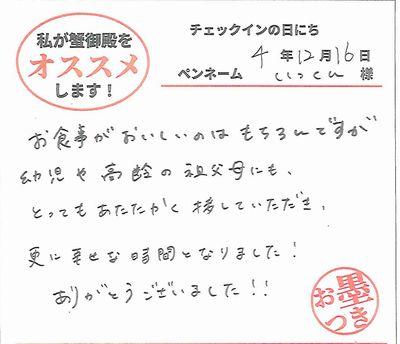 私が蟹御殿を
オススメ
します！
チェックインの日にち
4年12月16日
ペンネーム いっくん 様
お食事がおいしいのはもちろんですが
幼児や高齢の祖父母にも、
とってもあたたかく接していただき、
更に幸せな時間となりました！
ありがとうございました！！
お墨つき